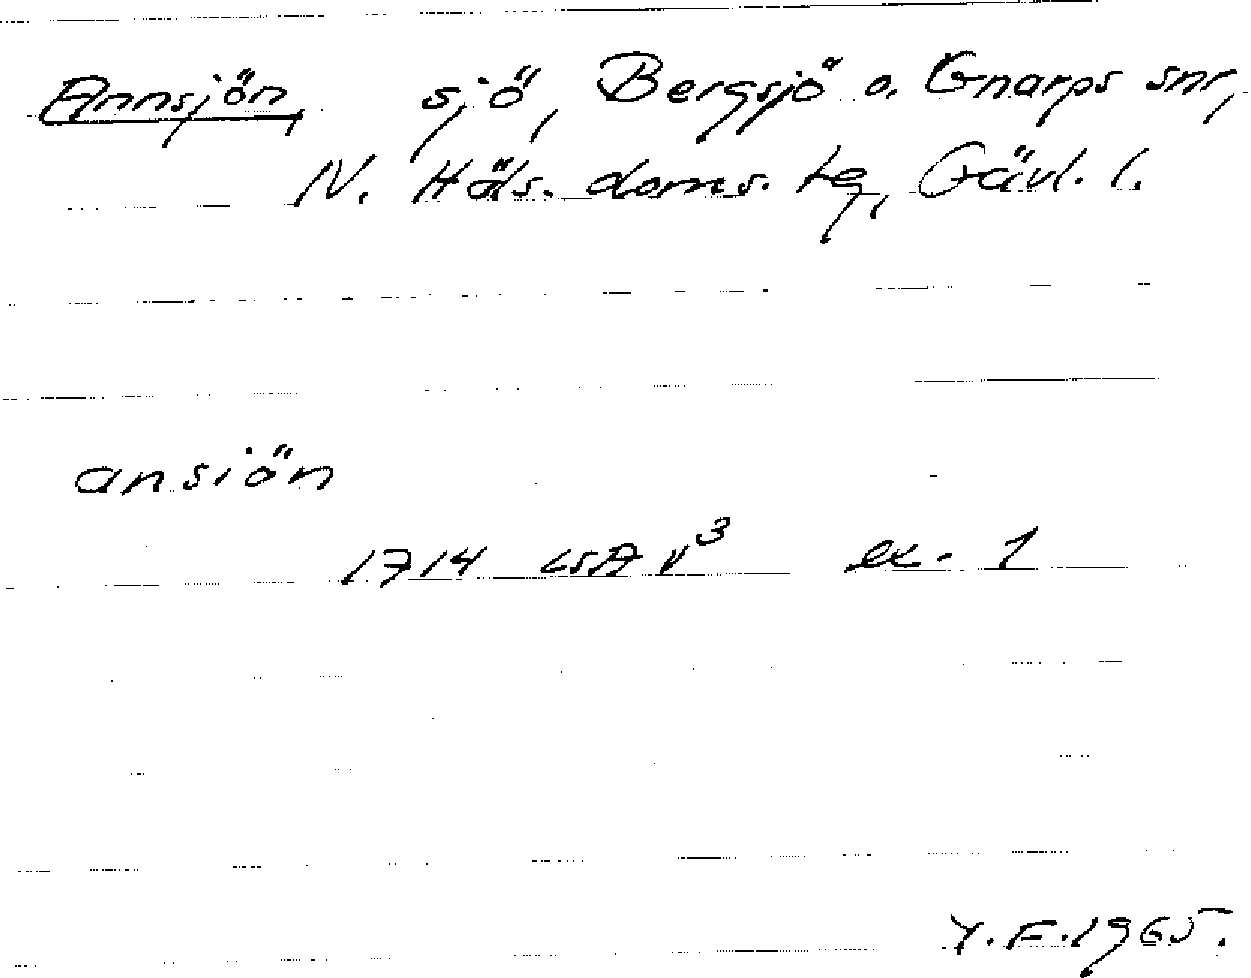 Annsjön, sjö, Bergsjö o. Gnarps snr,
N. Häls. doms. tg, Gävl. l.
ansiön
1714 LSA V³ ex. 1
Y. F. 1965.